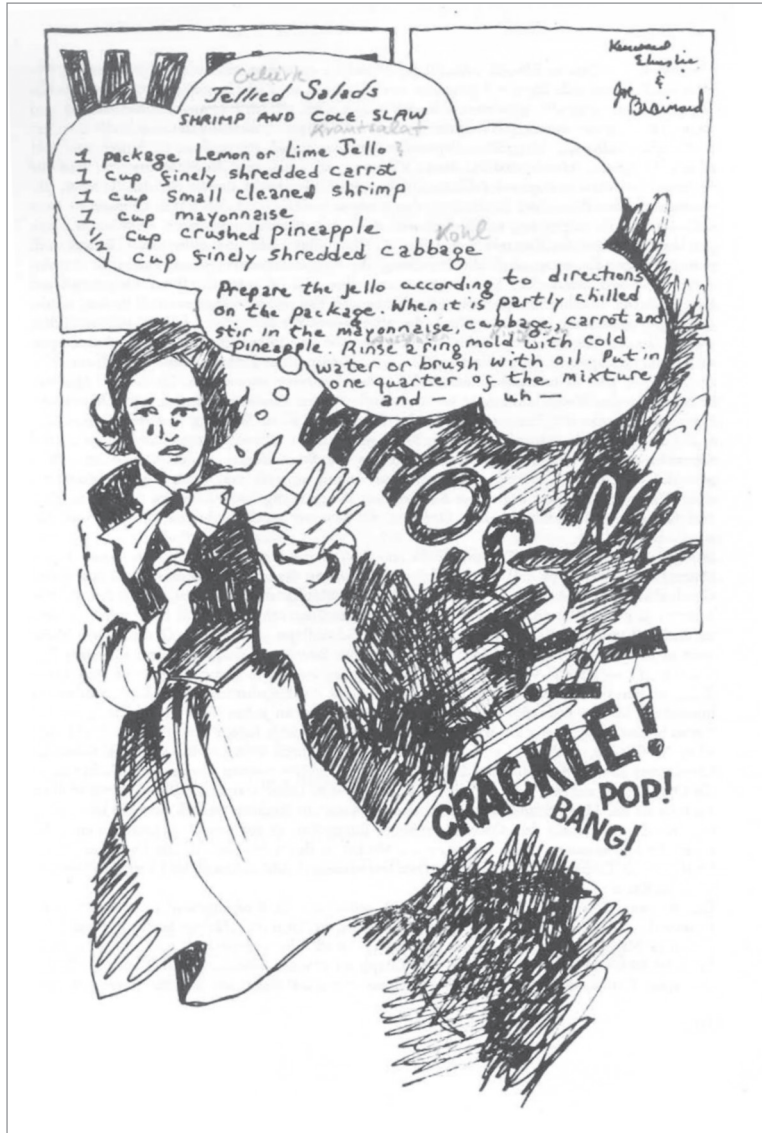 Kenward
Elmslie
&
Joe
Brainard
Jellied Salads
SHRIMP AND COLE SLAW
Krautsalat
1 package Lemon or Lime Jello
1 cup finely shredded carrot
1 cup small cleaned shrimp
1 cup mayonnaise
1/2 cup crushed pineapple
Kohl
1 cup finely shredded cabbage
Prepare the jello according to directions
on the package. When it is partly chilled
stir in the mayonnaise, cabbage, carrot and
pineapple. Rinse a ring mold with cold
water or brush with oil. Put in
one quarter of the mixture
and — uh —
WHO
CRACKLE!
POP!
BANG!